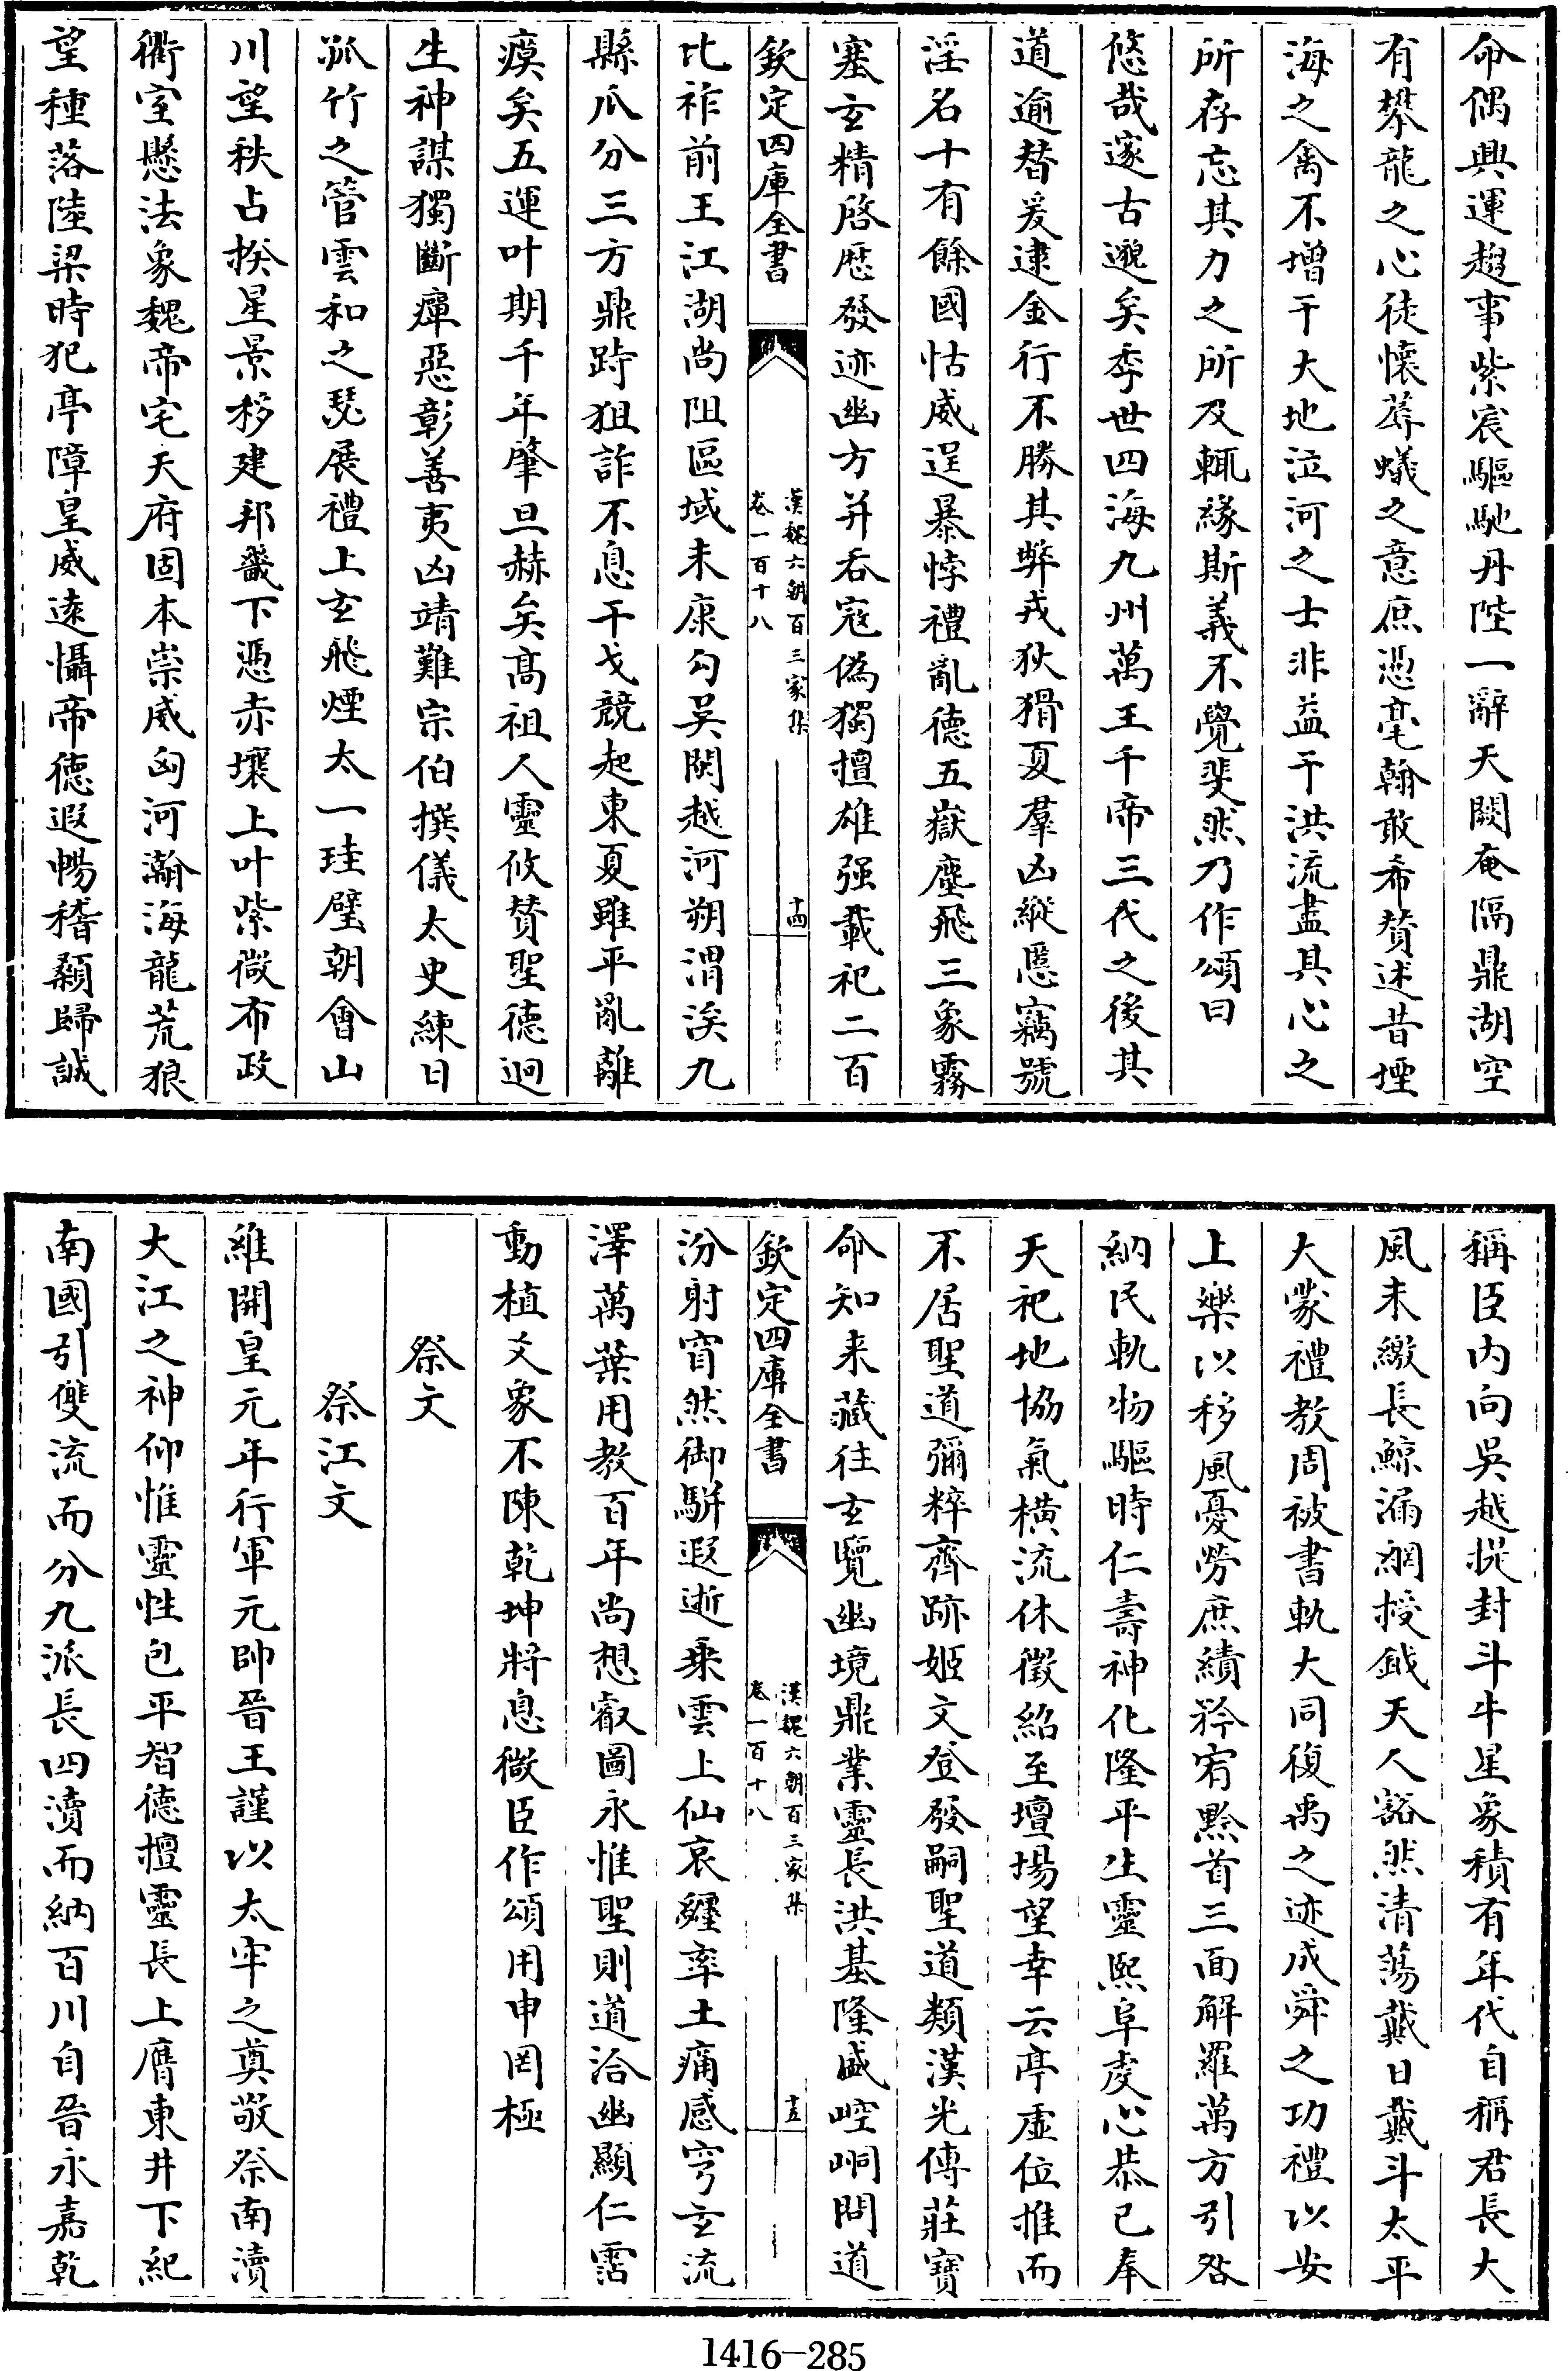 命偶興運趨事紫宸驅馳丹陛一辭天闕奄隔鼎湖空
有攀龍之心徒懷蓐蟻之意庶憑毫翰敢希贊述昔堙
海之禽不增于大地泣河之士非益于洪流盡其心之
所存忘其力之所及輒緣斯義不覺斐然乃作頌曰
悠哉邃古邈矣季世四海九州萬王千帝三代之後其
道逾替爰逮金行不勝其弊戎狄猾夏羣凶縱慝竊號
淫名十有餘國怙威逞暴悖禮亂德五嶽塵飛三象霧
塞玄精啓歴發迹幽方并吞寇僞獨擅雄强載祀二百
欽定四庫全書
漢魏六朝百三家集
卷一百十八
十四
比祚前王江湖尚阻區域未康勾吳閩越河朔渭涘九
縣瓜分三方鼎跱狙詐不息干戈競起東夏雖平亂離
瘼矣五運叶期千年肇旦赫矣髙祖人靈攸贊聖德迥
生神謀獨斷癉惡彰善夷凶靖難宗伯撰儀太史練日
孤竹之管雲和之瑟展禮上玄飛煙太一珪璧朝會山
川望秩占揆星景移建邦畿下憑赤壤上叶紫微布政
衢室懸法象魏帝宅天府固本崇威匈河瀚海龍荒狼
望種落陸梁時犯亭障皇威遠懾帝德遐暢稽顙歸誠
稱臣内向吳越提封斗牛星象積有年代自稱君長大
風未繳長鯨漏網授鉞天人豁然清蕩戴日戴斗太平
大蒙禮教周被書軌大同復禹之迹成舜之功禮以安
上樂以移風憂勞庶績矜宥黔首三面解羅萬方引咎
納民軌物驅時仁壽神化隆平生靈熙阜虔心恭已奉
天祀地協氣橫流休徵紹至壇場望幸云亭虚位推而
不居聖道彌粹齊跡姬文登發嗣聖道類漢光傳莊寶
命知来藏往玄覽幽境鼎業靈長洪基隆盛崆峒問道
欽定四庫全書
漢魏六朝百三家集
卷一百十八
十五
汾射窅然御駢遐逝乗雲上仙哀纒率土痛感穹玄流
澤萬葉用教百年尚想叡圖永惟聖則道洽幽顯仁霑
動植爻象不陳乾坤將息微臣作頌用申罔極
祭文
祭江文
維開皇元年行軍元帥晉王謹以太牢之奠敬祭南瀆
大江之神仰惟靈性包平智德擅靈長上膺東井下紀
南國引雙流而分九派長四瀆而納百川自晉永嘉乾
1416-285